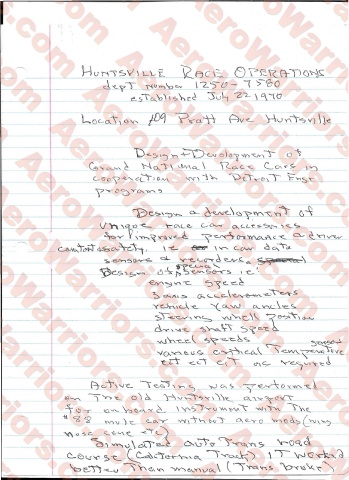 HUNTSVILLE RACE OPERATIONS
dept number 1250-7580
established July 22 1970
Location 109 Pratt Ave Huntsville
Design + Development of
Grand National Race Cars in
cooperation with Detroit Engr
programs
Design & development of
unique race car accessories
for improved performance & driver
safety. ie in car data
sensors & recorders.
Design of special sensors ie:
engine speed
3 axis accelerometers
vehicle yaw angles
steering wheel position
drive shaft speed
wheel speeds
various critical temperative sensors
etc etc etc as required
Active Testing was performed
on The old Huntsville airport
for onboard instrument with The
#88 mule car without aero mods (wing
nose cone etc)
Simulated auto Trans road
course (California Track) IT worked
better Than manual (Trans broke)
AeroWarriors.com